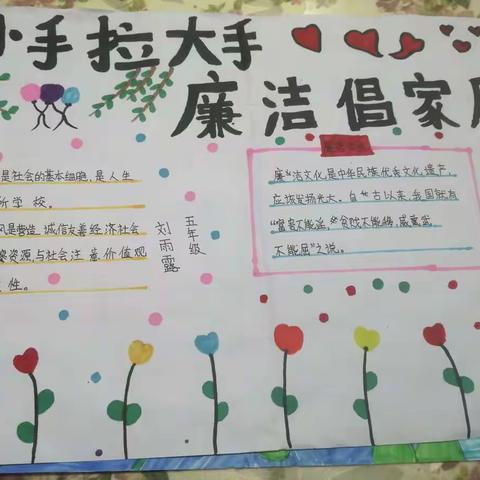 小手拉大手
廉洁倡家风
是社会的基本细胞,是人生
所学校。
风是营造诚信友善经济社会
资源,与社会注意价值观
性。
五年级
刘雨露
廉洁文化是中华民族优良文化遗产,
应该发扬光大。自"古以来,我国就有
"富贵不能淫,""贫贱不能移,威武
不能屈"之说。